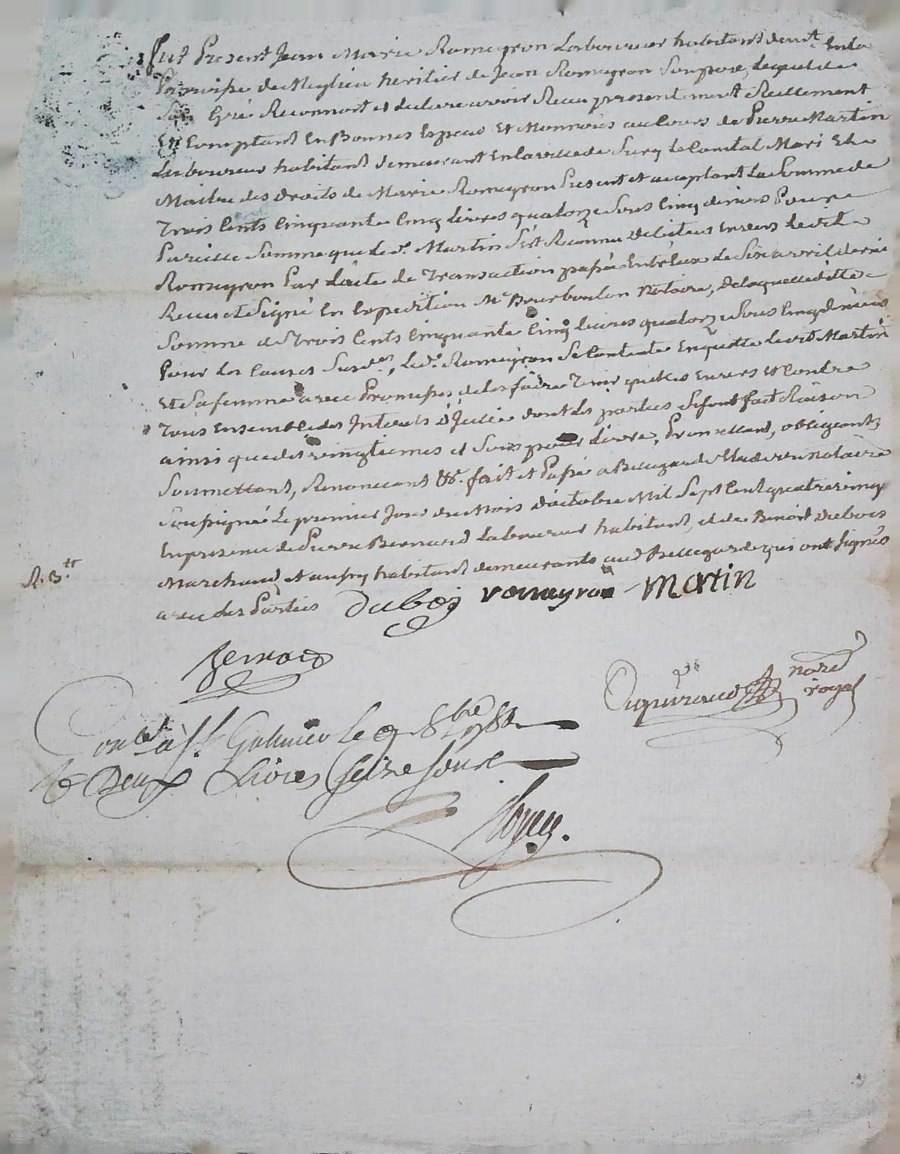 fut Present Jean Marie Romeyron Laboureur habitant demt. En la
Paroisse de Meylieu heritier de Jean Romeyron Son pere, Lequel de
Son Gré Reconnoit et declare avoir Recu presentement Reellement
Et Comptant En Bonnes Especes Et Monnoies au Cours de Pierre Martin
Laboureur habitant demeurant En la de Sury le Comtal Mari Et
Maitre des Droits de Marie Romeyron Present et acceptant La Somme de
Trois Cents Cinquante Cinq Livres quatorze Sous Cinq deniers Pour
Pareille Somme que led. Sr. Martin S'est Reconnu debiteur Envers led.
Romeyron Par L'acte de Transaction passé Entr'eux Le Six avril dernier
Recu et Signé En Expedition Me. Bourboulon Notaire, De laquelle dite
Somme de Trois Cents Cinquante Cinq livres quatorze Sous Cinq deniers
Pour Les Causes Susd., Led. Romeyron Se Contente En quitte Led. Martin
Et Sa femme avec Promesse de Les faire Tenir quittes Envers et Contre
Tous Ensemble des Interets d'Icelle dont Les parties Se font fait Raison
ainsi que des vingtiemes et Sous pour Livre, Promettant, obligeant,
Soumettant, Renoncant &c. fait et Passé a Bellegarde notaire
Soussigné Le premier Jour du Mois d'octobre Mil Sept Cent quatre vingt
En presence de Pierre Bernard Laboureur habitant, et de Benoit Dubois
Marchand et aussy habitant demeurants aud. Bellegarde qui ont Signés
avec des Parties Dubois romeyron Martin
R. 3.tt
Bernard
Conllé. à St. Galmier Le 9 8bre 
Deux Livres Seize Sous
nore royal